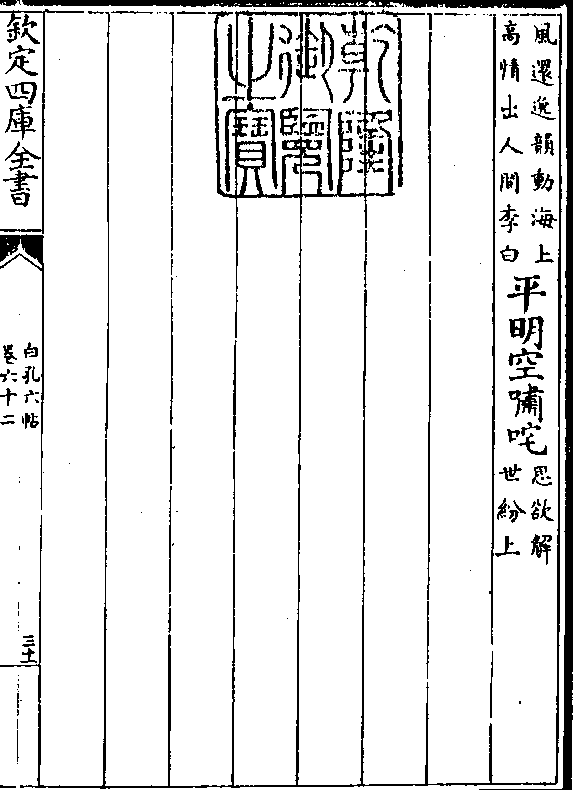 風還逸韻動海上
高情出人間李白
平明空嘯咤
思欲解
世紛上
乾隆御覽之寶
欽定四庫全書
白孔六帖
卷六十二
三十